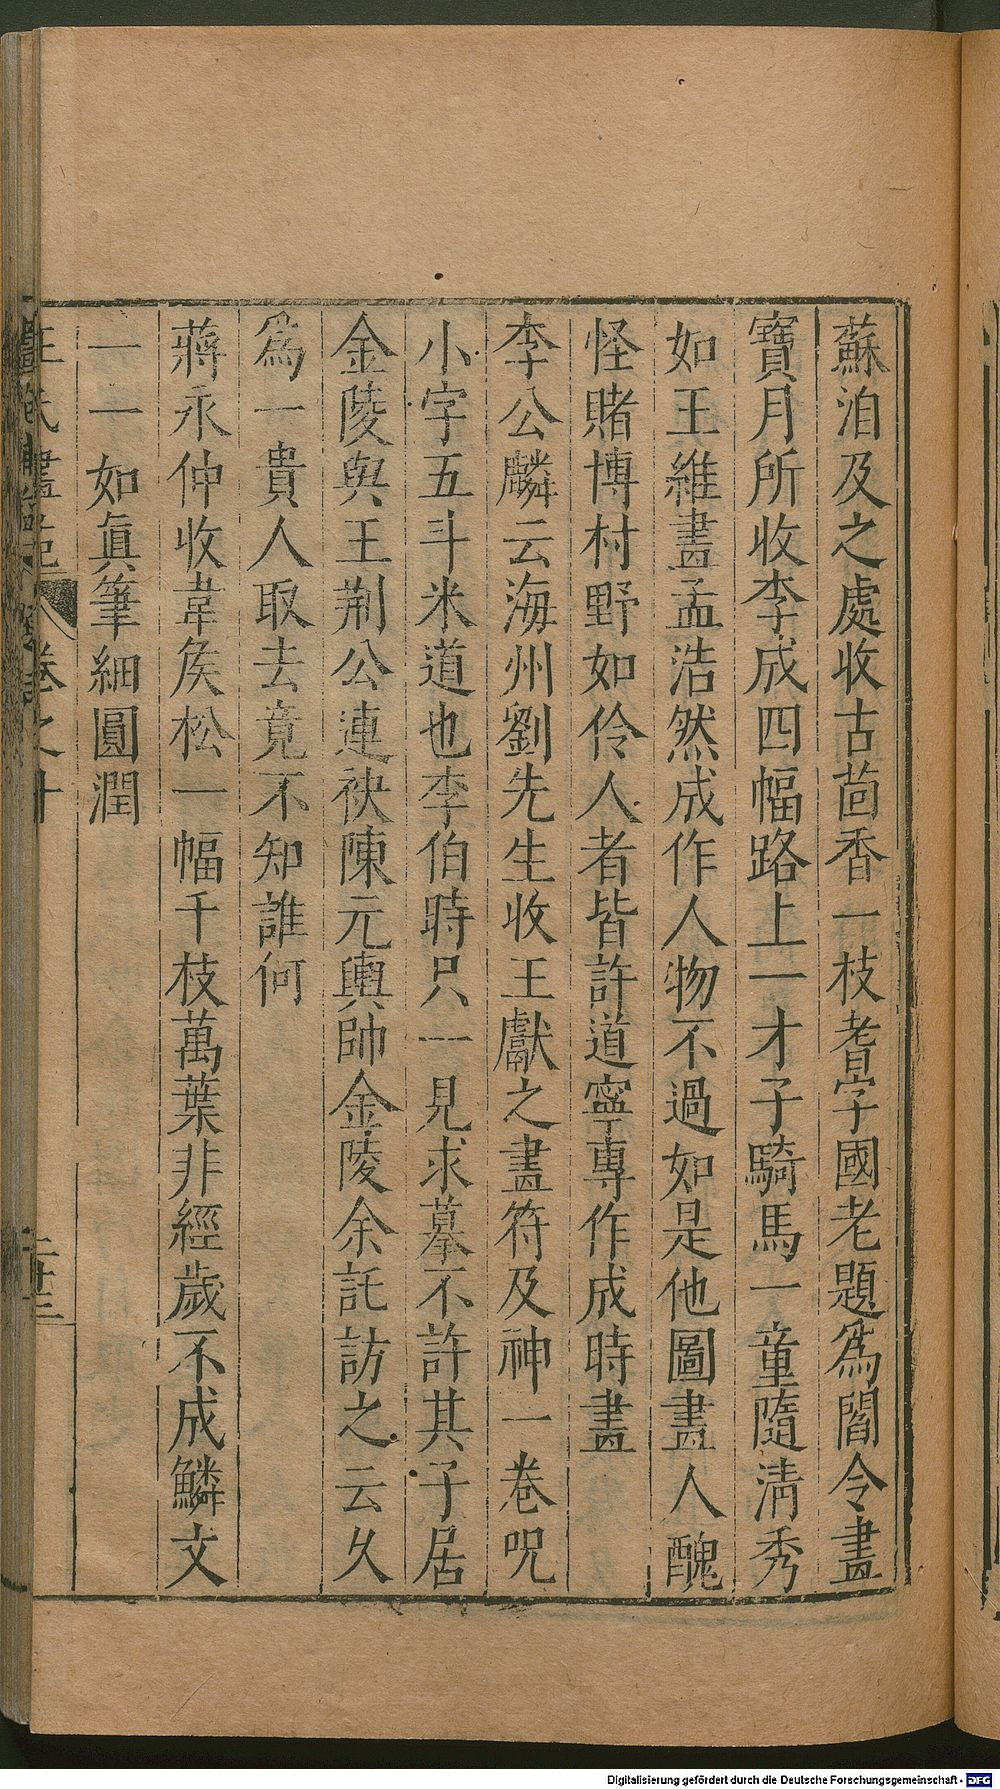 蘇洎及之處收古茴香一枝耆字國老題爲閻令畫
寶月所收李成四幅路上一才子騎馬一童隨清秀
如王維畫孟浩然成作人物不過如是他圖畫人醜
怪賭博村野如伶人者皆許道寧專作成時畫
李公麟云海州劉先生收王獻之畫符及神一卷呪
小字五斗米道也李伯時只一見求摹不許其子居
金陵與王荆公連袂陳元輿帥金陵余託訪之云久
爲一貴人取去竟不知誰何
蔣永仲收韋矦松一幅千枝萬葉非經歲不成鱗文
一一如眞筆細圓潤
王氏畫苑 卷之十 二十三
Digitalisierung gefördert durch die Deutsche Forschungsgemeinschaft - DFG